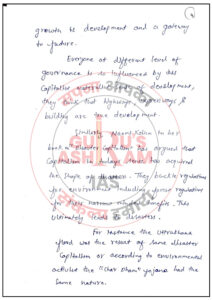 growth to development and a gateway
to future.
Everyone at different level of
governance is so influenced by this
Capitalism development,
they think that highways, expressways &
building are true development.
Similarly, Naomi Klein in her
book "Disaster Capitalism" has argued that
Capitalism in todays time has acquired
the shape of disaster. They
for environment including
for their narrow benefits. This
ultimately leads to disasters.
For instance the Uttrakhand
flood was the result of same disaster
Capitalism or according to environmental
activist the "Char Dham" yojana had the
same nature.